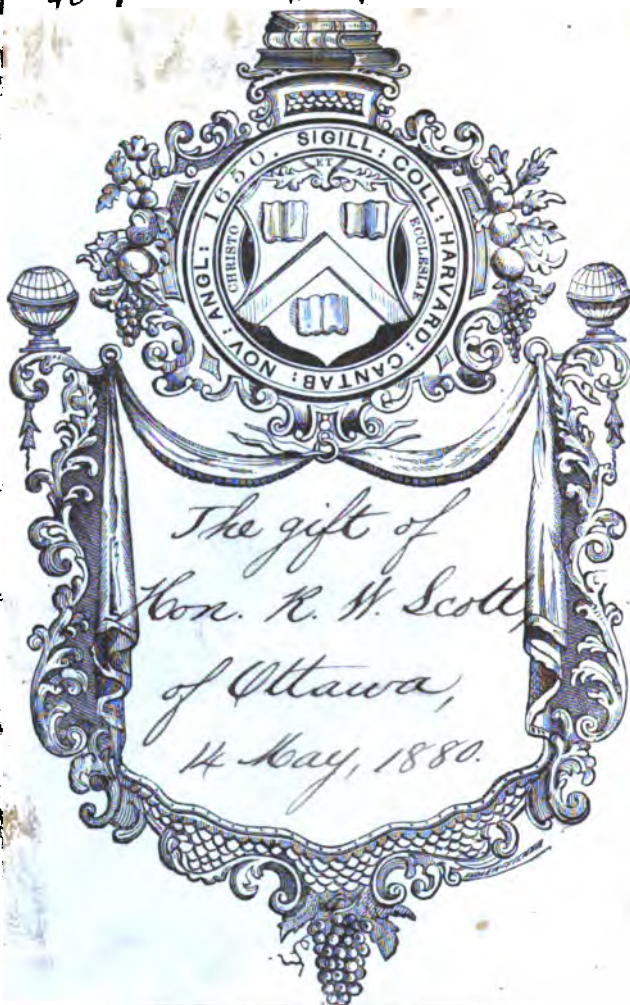 SIGILL: COLL: HARVARD: CANTAB: NOV: ANGL: 1650.
ET
CHRISTO
ECCLESIAE
The gift of
Hon. R. W. Scott,
of Ottawa,
14 May, 1880.